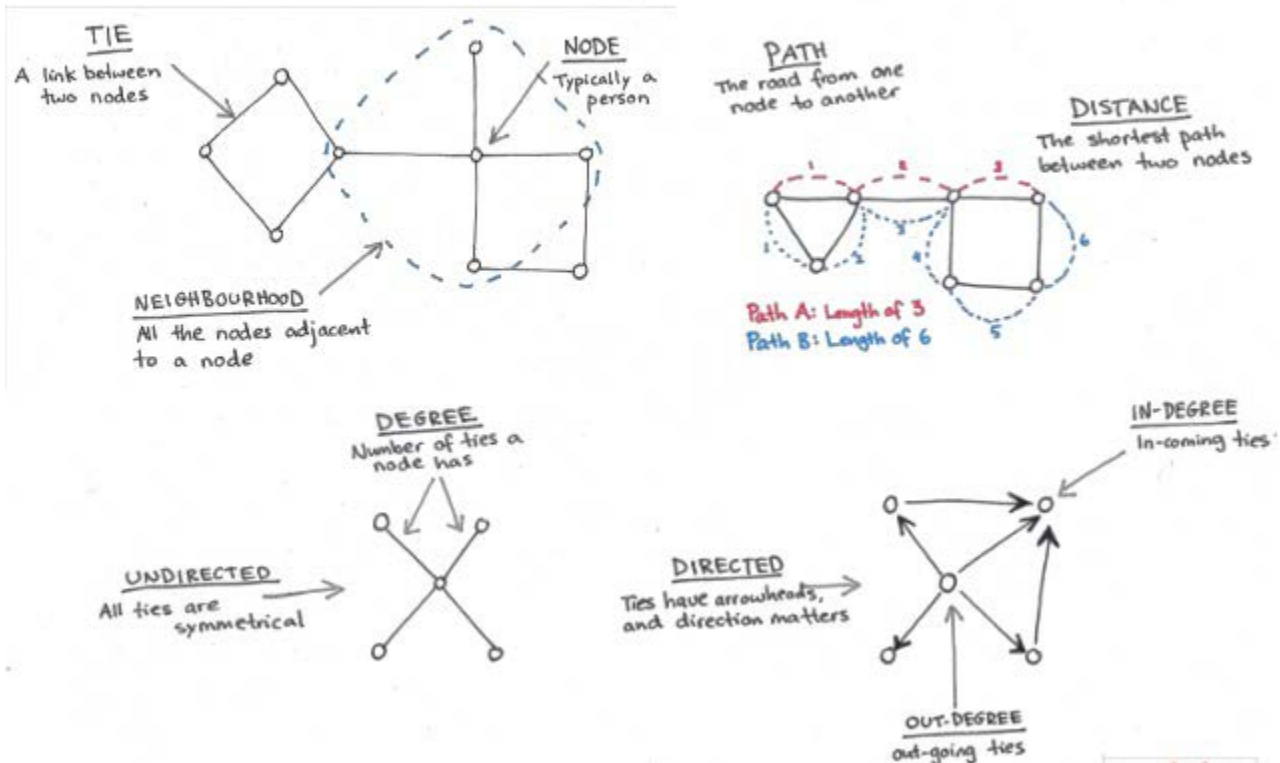 TIE
A link between
two nodes
NODE
Typically a
person
NEIGHBOURHOOD
All the nodes adjacent
to a node
PATH
The road from one
node to another
DISTANCE
The shortest path
between two nodes
1
2
3
1
2
3
4
5
6
Path A: Length of 3
Path B: Length of 6
DEGREE
Number of ties a
node has
UNDIRECTED
All ties are
symmetrical
DIRECTED
Ties have arrowheads,
and direction matters
IN-DEGREE
In-coming ties
OUT-DEGREE
out-going ties